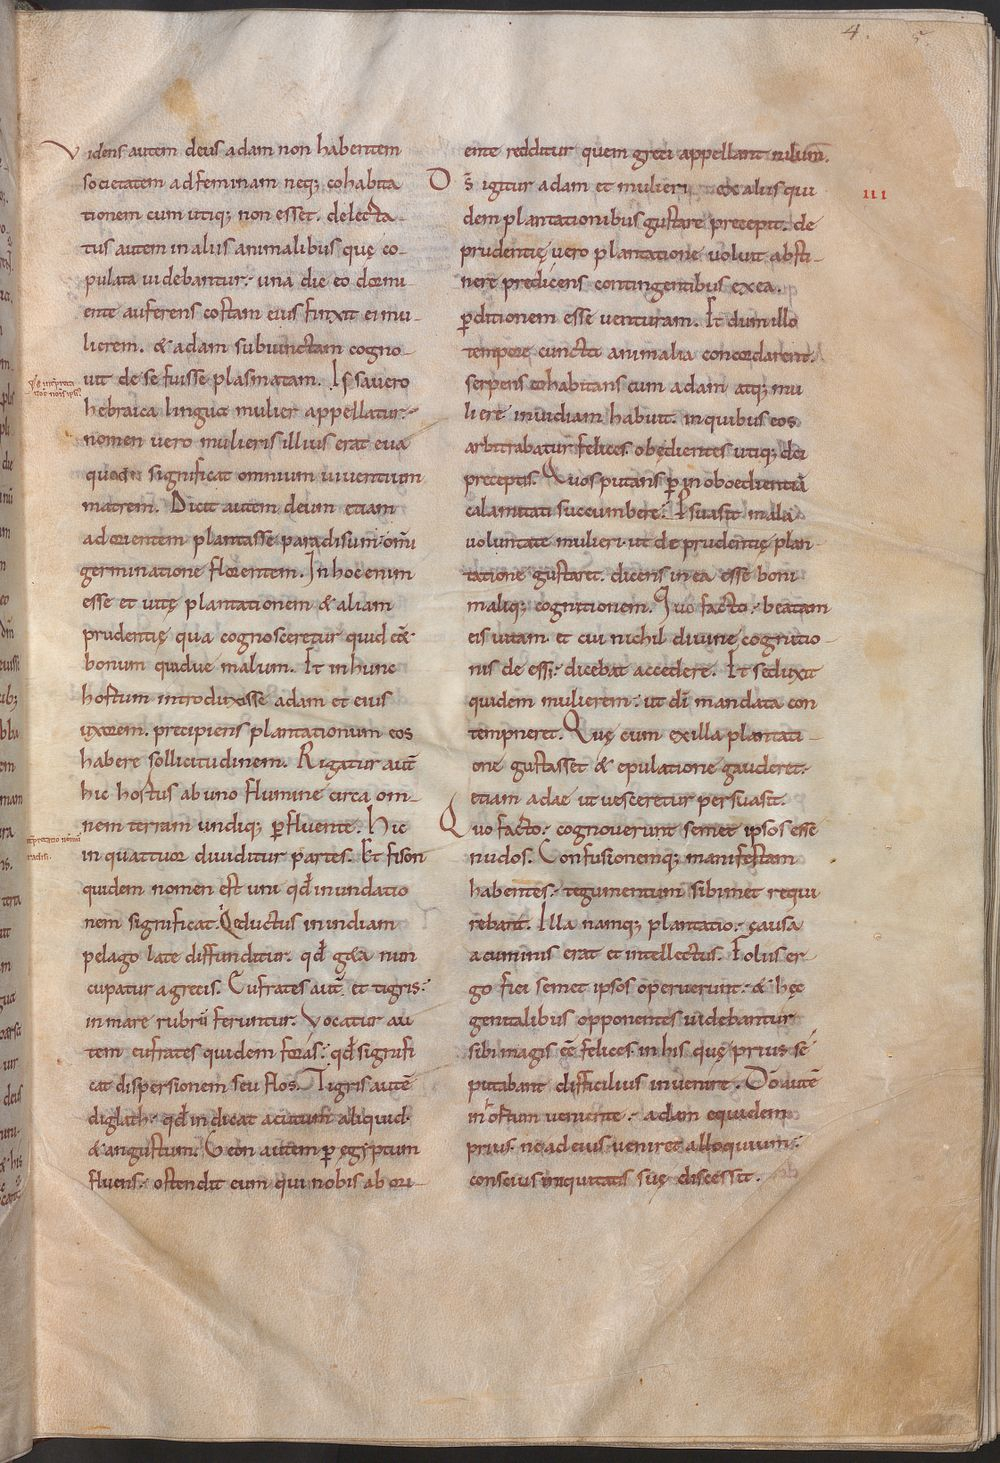 4. 5.
Videns autem deus adam non habentem
societatem ad feminam neq; cohabita
tionem cum utiq; non esset. delecta-
tus autem in aliis animalibus quę co-
pulata uidebantur: una die eo dormi-
ente auferens costam eius finxit ei mu-
lierem. & adam subiunctam cogno-
uit de se fuisse plasmatam. Issa uero
hebraica lingua mulier appellatur:
nomen uero mulieris illius erat eua
quod significat omnium uiuentium
matrem. Dicit autem deum etiam
ad orientem plantasse paradisum: omi
germinatione florentem. In hoc enim
esse et uitę plantationem & aliam
prudentię qua cognosceretur quid eēt
bonum quidue malum. Et in hunc
hostum introduxisse adam et eius
uxorem. precipiens plantationum eos
habere sollicitudinem. Rigatur aut̄
hic hostus ab uno flumine circa om-
nem terram undiq; ꝑfluente. Hic
in quattuor diuiditur partes. Et fison
quidem nomen est uni qđ inundatio
nem significat. Eductus in indiam
pelago late diffunditur. qđ
cupatur a grecis. Eufrates aut̄ et tigris:
in mare rubrū feruntur. Vocatur au
tem eufrates quidem foras: qđ signifi
cat dispersionem seu flos. Tigris autē
diglath: qđ indicat acutum aliquid
& angustum. Geon autem ꝑ egyptum
fluens: ostendit eum qui nobis ab ori-
ente redditur quem greci appellant nilum.
III
D̄s igitur adam et mulieri ex aliis qui
dem plantationibus gustare precepit. de
prudentię uero plantatione uoluit absti-
nere predicens contingentibus ex ea.
ꝑditionem esse uenturam. Et dum illo
tempore cuncta animalia concordarent.
serpens cohabitans cum adam atq; mu
liere inuidiam habuit. in quibus eos
arbitrabatur felices. obędientes utiq; dei
preceptis. Quos putans ꝑ inoboedientiā
calamitati succumbere: suasit mala
uoluntate mulieri. ut de prudentię plan-
tatione gustaret. dicens in ea esse boni
maliq; cognitionem. Quo facto: beatam
eis uitam. et cui nichil diuine cognitio-
nis deesset: dicebat accedere. Et seduxit
quidem mulierem: ut dī mandata con
tempneret. Quę cum ex illa plantati-
one gustasset & epulatione gauderet:
etiam adae ut uesceretur persuasit.
Quo facto: cognouerunt semet ipsos esse
nudos. Confusionemq; manifestam
habentes: tegumentum sibimet requi
rebant. Illa namq; plantatio: causa
acuminis erat et intellectus. Foliis er-
go fici semet ipsos operuerunt: & hęc
genitalibus opponentes uidebantur
sibi magis eē felices. in his quę prius sé
putabant difficilius inuenire. Dō autē
in ortum ueniente: adam equidem
prius. ne ad eius ueniret alloquium:
conscius iniquitatis suę discessit.